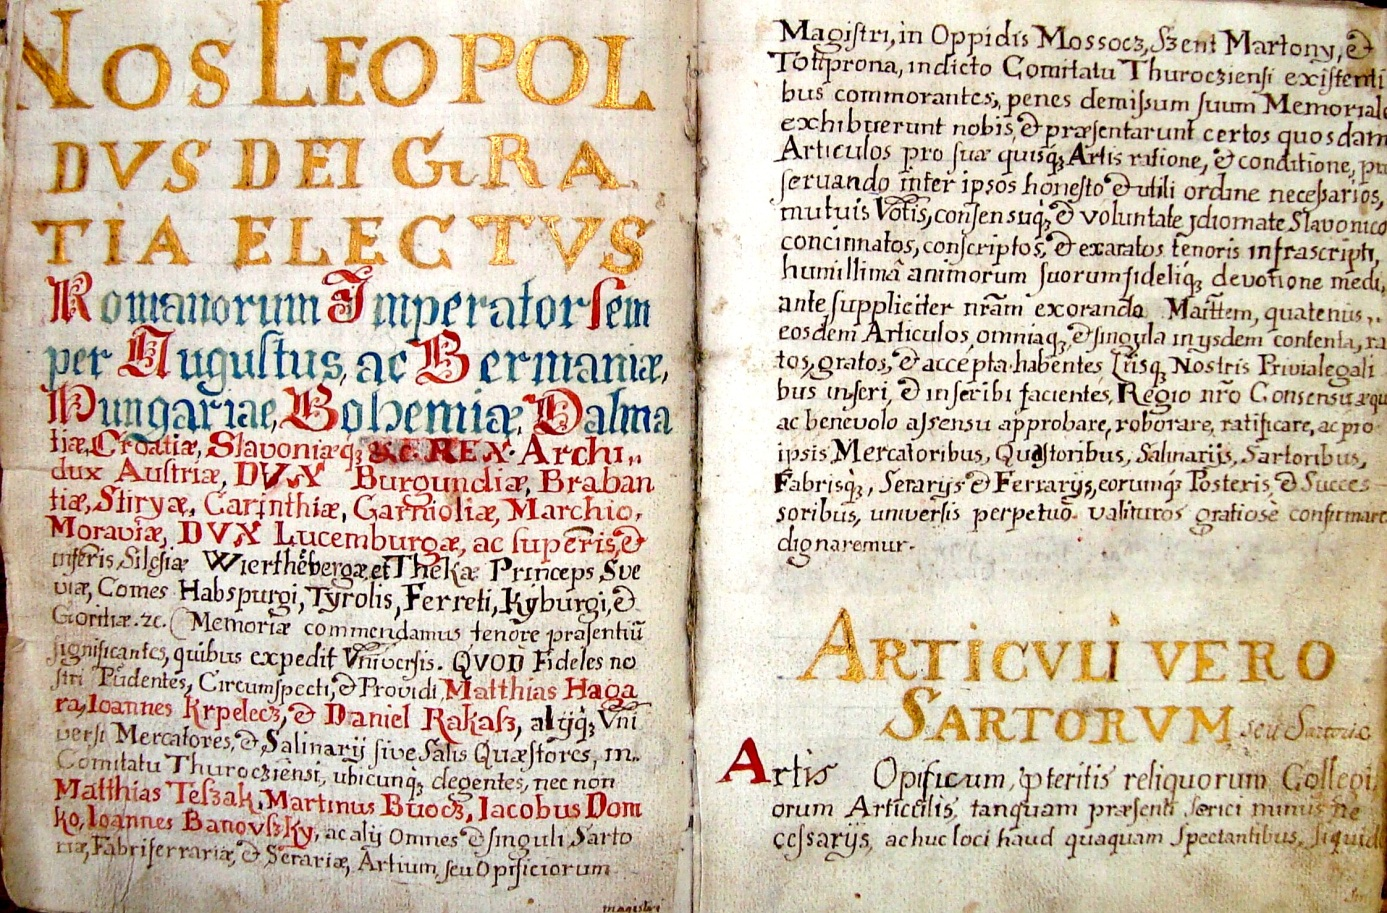 NOS LEOPOL
DVS DEI GRA
TIA ELECTVS
Romanorum Imperator sem
per Augustus, ac Germaniæ,
Hungariae, Bohemiæ, Dalma
tiæ, Croatiæ, Slavoniæq́ꝫ &c. REX. Archi,,
dux Austriæ, DVX Burgundiæ, Braban
tiæ, Stiryæ, Carinthiæ, Carnioliæ, Marchio,
Moraviæ, DVX Lucemburgæ, ac superis, &
inferis Silesiæ Wierthêbergæ, et Thekæ Princeps, Sve
viæ, Comes Habspurgi, Tyrolis, Ferreti, Kyburgi, &
Goritiæ. &c. Memoriæ commendamus tenore præsentiū
significantes, quibus expedit Vniversis. QVOD Fideles no
stri Prudentes, Circumspecti, & Providi Matthias Haga
ra, Ioannes Krpelecz, & Daniel Rakasz, alijq́ꝫ Vni
versi Mercatores, & Salinarij sive Salis Quæstores, in,,
Comitatu Thurocziensi, ubicunqꝫ degentes, nec non
Matthias Teszak, Martinus Buocz, Iacobus Dom
ko, Ioannes Banovszky, ac alij Omnes & singuli Sarto
riæ, Fabriferrariæ, & Serariæ, Artium, seu Opificiorum
magistri
Magistri, in Oppidis Mossocz, Szent Martony, &
Tótprona, in dicto Comitatu Thurocziensi existenti
bus commorantes, penes demissum suum Memoriale
exhibuerunt nobis, & præsentarunt certos quosdam
Articulos pro suæ quisq́ꝫ Artis ratione, & conditione, pro
servando inter ipsos honesto & utili ordine necessarios,
mutuis Votis, consensuq́ꝫ, & voluntate jdiomate Slavonico
concinnatos, conscriptos, & exaratos tenoris infrascripti,
humillimâ animorum suorum fideliq́ꝫ devotione medi,
ante suppliciter nrām exorando Maittem, quatenus,,
eosdem Articulos, omniaqꝫ, & singula in ysdem contenta, ra
tos, gratos, & accepta habentes Lrisqꝫ Nostris Privialegali
bus inseri, & inseribi facientes, Regio nrō Consensu æqu
ac benevolo assensu approbare, roborare, ratificare, ac pro
ipsis Mercatoribus, Quæstoribus, Salinarijs, Sartoribus,
Fabrisq́ꝫ, Serarijs & Ferrarijs, eorumq́ꝫ Posteris, & Succes
soribus, universis perpetuo valituros gratiose confirmare
dignaremur.
ARTICVLI VERO
SARTORVM seu Sartoriæ
Artis Opificum, p̄teritis reliquorum Collegi
orum Articulis, tanquam præsenti serici minus ne
cessarijs, ac huc loci haud quaquam spectantibus, siquid